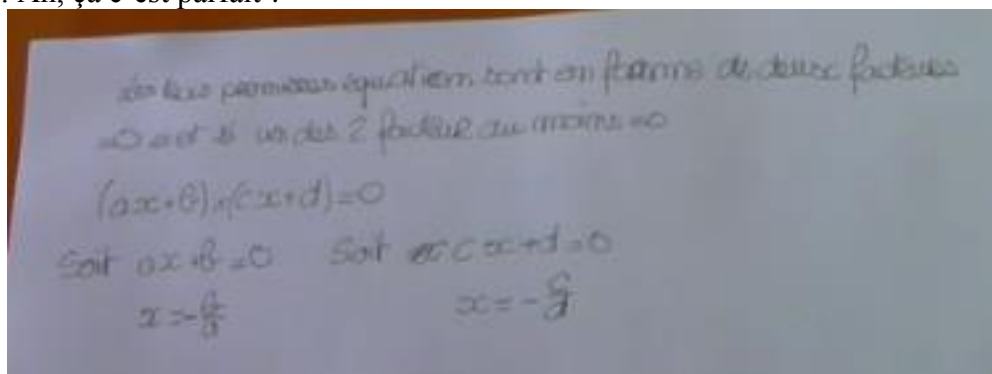 : Ah, ça c'est parfait !
les deux premières équations sont en forme de deux facteurs
=0 est si un des 2 facteur au moins =0
(ax+b)×(cx+d)=0
Soit ax+b=0 Soit cx+d=0
x=-
x=-